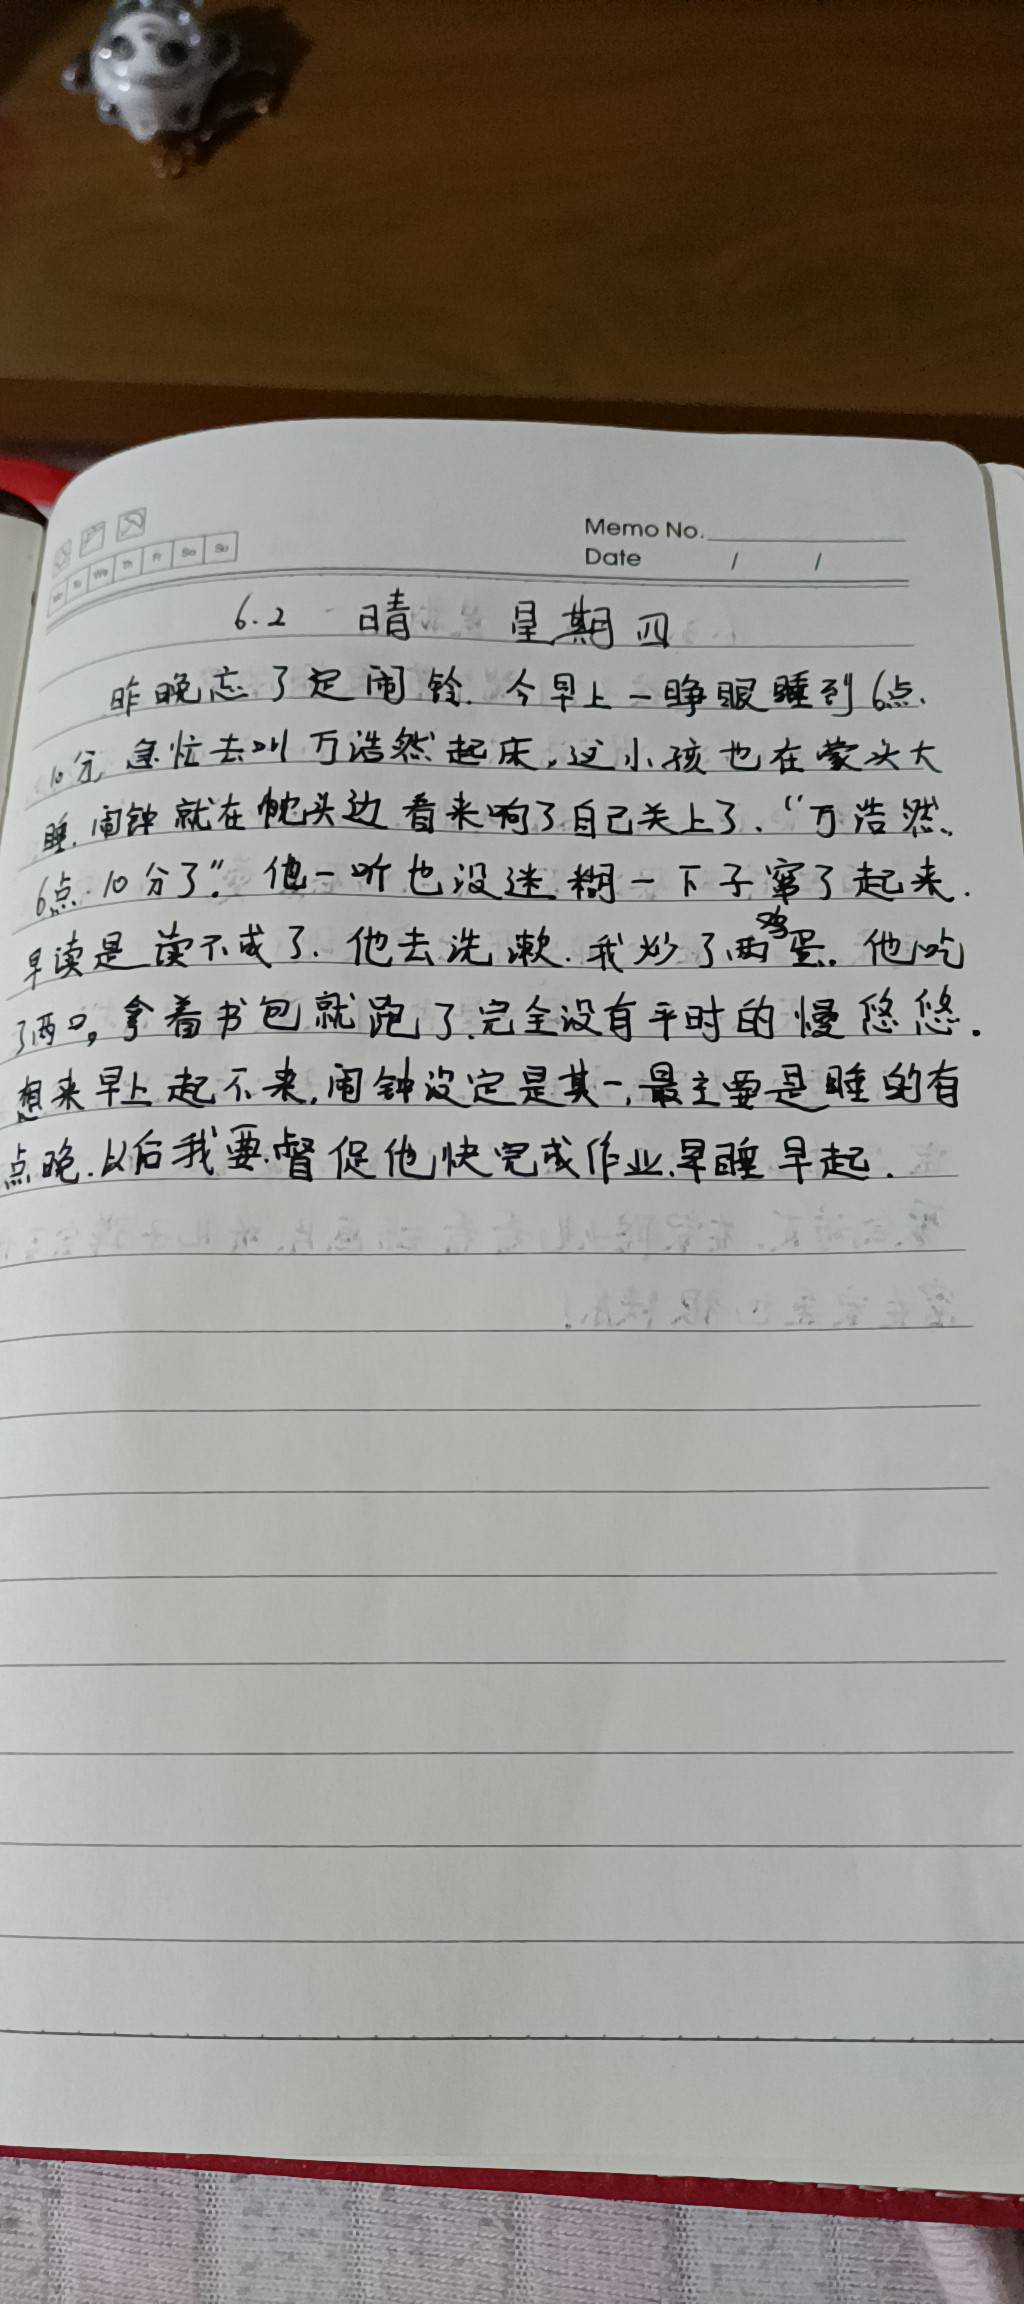 Memo No.
Date / /
Mo Tu We Th Fr Sa Su
6.2 晴 星期四
昨晚忘了定闹铃.今早上一睁眼睡到6点.
10分,急忙去叫万浩然起床,这小孩也在蒙头大
睡.闹钟就在枕头边看来响了自己关上了.“万浩然、
6点.10分了”.他一听也没迷糊一下子窜了起来.
早读是读不成了.他去洗漱.我炒了两鸡蛋.他吃
了两口,拿着书包就跑了.完全没有平时的慢悠悠.
想来早上起不来,闹钟没定是其一,最主要是睡的有
点晚.以后我要督促他快完成作业.早睡早起.